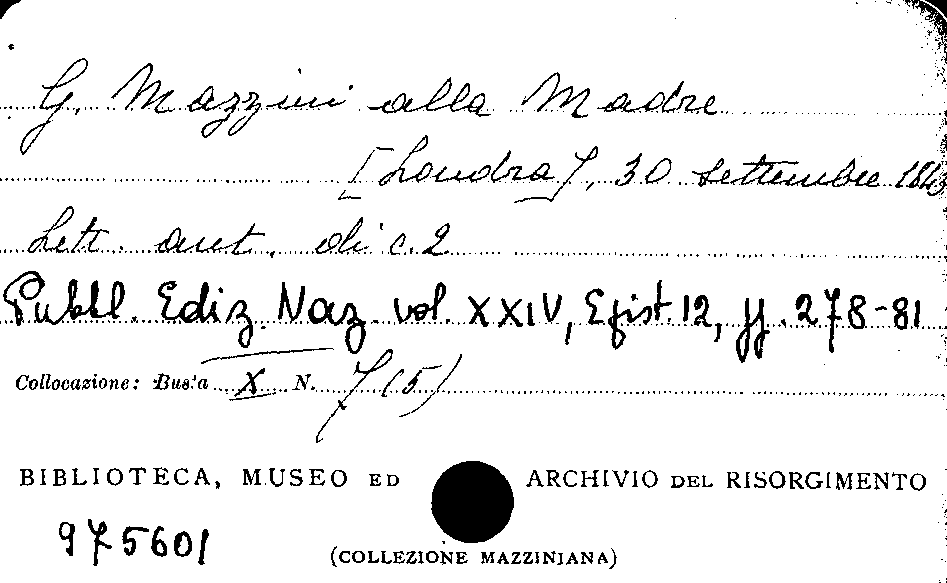 G. Mazzini alla Madre
[Londra], 30 settembre 1843
Lett. aut. di c. 2
Pubbl. Ediz. Naz. vol. XXIV, Epist. 12, pp. 278-81
Collocazione: Busta X N. 7 (5)
BIBLIOTECA, MUSEO ED ARCHIVIO DEL RISORGIMENTO
975601
(COLLEZIONE MAZZINIANA)